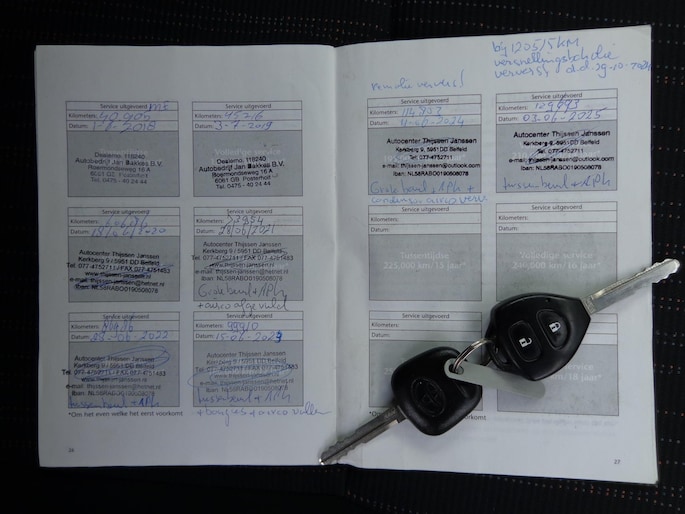 Service uitgevoerd
Kilometers: 40.905
Datum: 1-8-2018
Dealerno. 118240
Autobedrijf Jan Bakkes B.V.
Roermondseweg 16 A
6061 GB Posterholt
Tel. 0475 - 40 24 44
Service uitgevoerd
Kilometers: 45216
Datum: 3-7-2019
Dealerno. 118240
Autobedrijf Jan Bakkes B.V.
Roermondseweg 16 A
6061 GB Posterholt
Tel. 0475 - 40 24 44
Service uitgevoerd
Kilometers:
Datum:
Autocenter Thijssen Janssen
Kerkberg 9 / 5951 DD Belfeld
Tel. 077-4752711 / FAX 077-4751483
www.thijssen-janssen.nl
e-mail: thijssen-janssen@hetnet.nl
Iban: NL58RABO0190508078
Service uitgevoerd
Kilometers:
Datum: 28/06/2021
Autocenter Thijssen Janssen
Kerkberg 9 / 5951 DD Belfeld
Tel. 077-4752711 / FAX 077-4751483
www.thijssen-janssen.nl
e-mail: thijssen-janssen@hetnet.nl
Iban: NL58RABO0190508078
Grote beurt + APK
+ airco afgevuld
Service uitgevoerd
Kilometers:
Datum: 08-06-2022
Autocenter Thijssen Janssen
Kerkberg 9 / 5951 DD Belfeld
Tel. 077-4752711 / FAX 077-4751483
www.thijssen-janssen.nl
e-mail: thijssen-janssen@hetnet.nl
Iban: NL58RABO0190508078
tussenbeurt + APK
Service uitgevoerd
Kilometers: 99910
Datum: 15-06-2023
Autocenter Thijssen Janssen
Kerkberg 9 / 5951 DD Belfeld
Tel. 077-4752711 / FAX 077-4751483
www.thijssen-janssen.nl
e-mail: thijssen-janssen@hetnet.nl
Iban: NL58RABO0190508078
tussenbeurt + APK
+ bougies + airco vullen
*Om het even welke het eerst voorkomt
26
bij 120515 KM
versnellingsbakolie
ververst d.d. 29-10-2024
remolie ververst
Service uitgevoerd
Kilometers: 114803
Datum: 11-06-2024
Autocenter Thijssen Janssen
Kerkberg 9, 5951 DD Belfeld
Tel. 077-4752711
e-mail: thijssen-janssen@outlook.com
Iban: NL58RABO0190508078
Grote beurt + APK +
Service uitgevoerd
Kilometers: 129093
Datum: 03-06-2025
Autocenter Thijssen Janssen
Kerkberg 9, 5951 DD Belfeld
Tel. 077-4752711
e-mail: thijssen-janssen@outlook.com
Iban: NL58RABO0190508078
tussenbeurt + APK
Service uitgevoerd
Kilometers:
Datum:
Tussentijdse
225.000 km/15 jaar*
Service uitgevoerd
Kilometers:
Datum:
Volledige service
240.000 km/16 jaar*
Service uitgevoerd
Kilometers:
Datum:
27